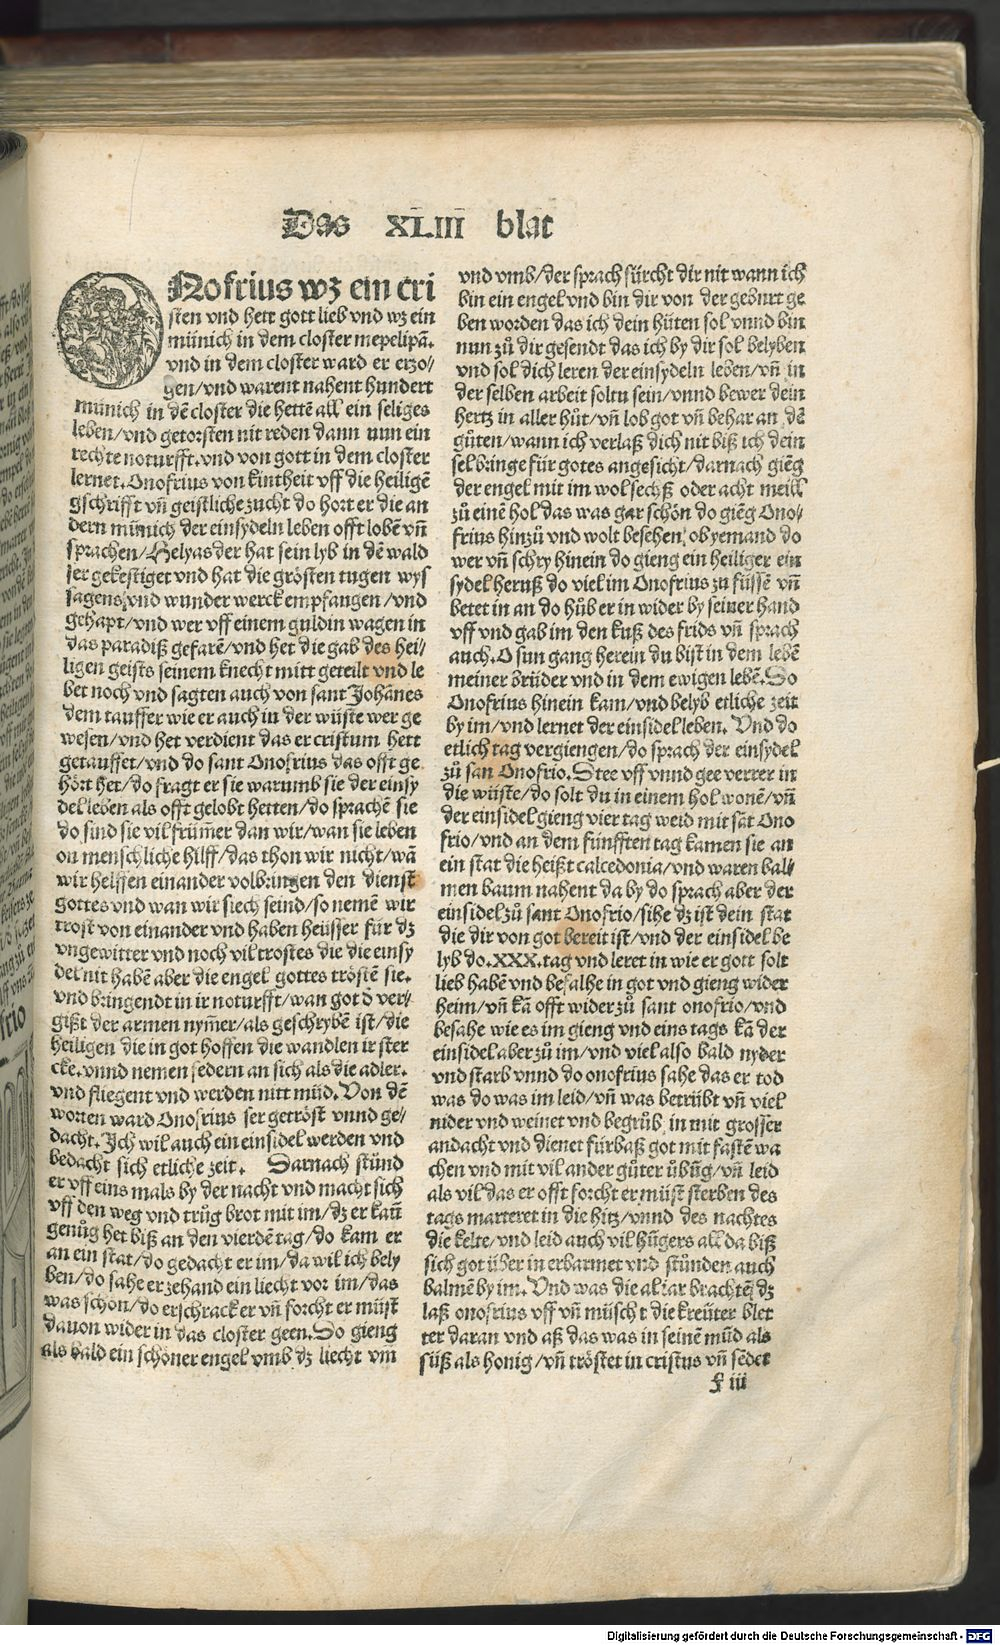 Das XLIII blat
ONofrius wz ein cri
sten vnd hett gott lieb vnd wz ein
münich in dem closter mepelipā.
vnd in dem closter ward er erzo/
gen/vnd warent nahent hundert
münich in dē closter die hettē all ein seliges
leben/vnd getorsten nit reden dann nun ein
rechte noturfft.vnd von gott in dem closter
lernet.Onofrius von kintheit vff die heiligē
gschrifft vñ geistliche zucht do hort er die an
dern münich der einsydeln leben offt lobē vñ
sprachen/Helyas der hat sein lyb in dē wald
ser gekestiget vnd hat die grösten tugen wys
sagens/vnd wunder werck empfangen/vnd
gehapt/vnd wer vff einem guldin wagen in
das paradiß gefarē/vnd het die gab des hei/
ligen geists seinem knecht mitt geteilt vnd le
bet noch vnd sagten auch von sant Johānes
dem tauffer wie er auch in der wüste wer ge
wesen/vnd het verdient das er cristum hett
getauffet/vnd do sant Onofrius das offt ge
hört het/do fragt er sie warumb sie der einsy
del leben als offt gelobt hetten/do sprachē sie
do sind sie vil frūmer dan wir/wan sie leben
on menschliche hilff/das thon wir nicht/wā
wir helffen einander volbringen den dienst
gottes vnd wan wir siech seind/so nemē wir
trost von einander vnd haben heüsser für dz
vngewitter vnd noch vil trostes die die einsy
del nit habē aber die engel gottes tröstē sie.
vnd bringendt in ir noturfft/wan got ð ver/
gißt der armen nym̄er/als geschrybē ist/die
heiligen die in got hoffen die wandlen ir ster
cke.vnnd nemen federn an sich als die adler.
vnd fliegent vnd werden nitt müd.Von dē
worten ward Onofrius ser getröst vnnd ge/
dacht.Ich wil auch ein einsidel werden vnd
bedacht sich etliche zeit. Darnach stünd
er vff eins mals by der nacht vnd macht sich
vff den weg vnd trůg brot mit im/dz er kaū
genůg het biß an den vierdē tag/do kam er
an ein stat/do gedacht er im/da wil ich bely
ben/do sahe er zehand ein liecht vor im/das
was schön/do erschrack er vñ forcht er müst
dauon wider in das closter geen.Do gieng
als bald ein schöner engel vmb dz liecht vm
vnd vmb/der sprach fürcht dir nit wann ich
bin ein engel vnd bin dir von der geburt ge
ben worden das ich dein hüten sol vnnd bin
nun zů dir gesendt das ich by dir sol belyben
vnd sol dich leren der einsydeln leben/vñ in
der selben arbeit soltu sein/vnnd bewer dein
hertz in aller hůt/vñ lob got vñ behar an dē
gůten/wann ich verlaß dich nit biß ich dein
sel bringe für gotes angesicht/darnach giēg
der engel mit im wol sechß oder acht meill
zů einē hol das was gar schön do giēg Ono/
frius hinzů vnd wolt besehen/ob yemand do
wer vñ schry hinein do gieng ein heiliger ein
sydel heruß do viel im Onofrius zu füssē vñ
betet in an do hůb er in wider by seiner hand
vff vnd gab im den kuß des frids vñ sprach
auch.O sun gang herein du bist in dem lebē
meiner brüder vnd in dem ewigen lebē.Do
Onofrius hinein kam/vnd belyb etliche zeit
by im/vnd lernet der einsidel leben. Vnd do
etlich tag vergiengen/do sprach der einsydel
zů san Onofrio.Stee vff vnnd gee verrer in
die wüste/do solt du in einem hol wonē/vñ
der einsidel gieng vier tag weid mit sāt Ono
frio/vnd an dem fünfften tag kamen sie an
ein stat die heißt calcedonia/vnd waren bal/
men baum nahent da by do sprach aber der
einsidel zů sant Onofrio/sihe dz ist dein stat
die dir von got bereit ist/vnd der einsidel be
lyb do.XXX.tag vnd leret in wie er gott solt
lieb habē vnd befalhe in got vnd gieng wider
heim/vñ kā offt wider zů sant onofrio/vnd
besahe wie es im gieng vnd eins tags kā der
einsidel aber zů im/vnd viel also bald nyder
vnd starb vnnd do onofrius sahe das er tod
was do was im leid/vñ was betrübt vñ viel
nider vnd weinet vnd begrůb in mit grosser
andacht vnd dienet fürbaß got mit fastē wa
chen vnd mit vil ander gůter übūg/vñ leid
als vil das er offt forcht er müst sterben des
tags marteret in die hitz/vnnd des nachtes
die kelte/vnd leid auch vil hūgers all da biß
sich got über in erbarmet vnd stůnden auch
balmē by im.Vnd was die al iar brachtē dz
laß onofrius vff vñ müscht die kreüter blet
ter daran vnd aß das was in seinē mūd als
süß als honig/vñ tröstet in cristus vñ sedet
f iii
Digitalisierung gefördert durch die Deutsche Forschungsgemeinschaft - DFG